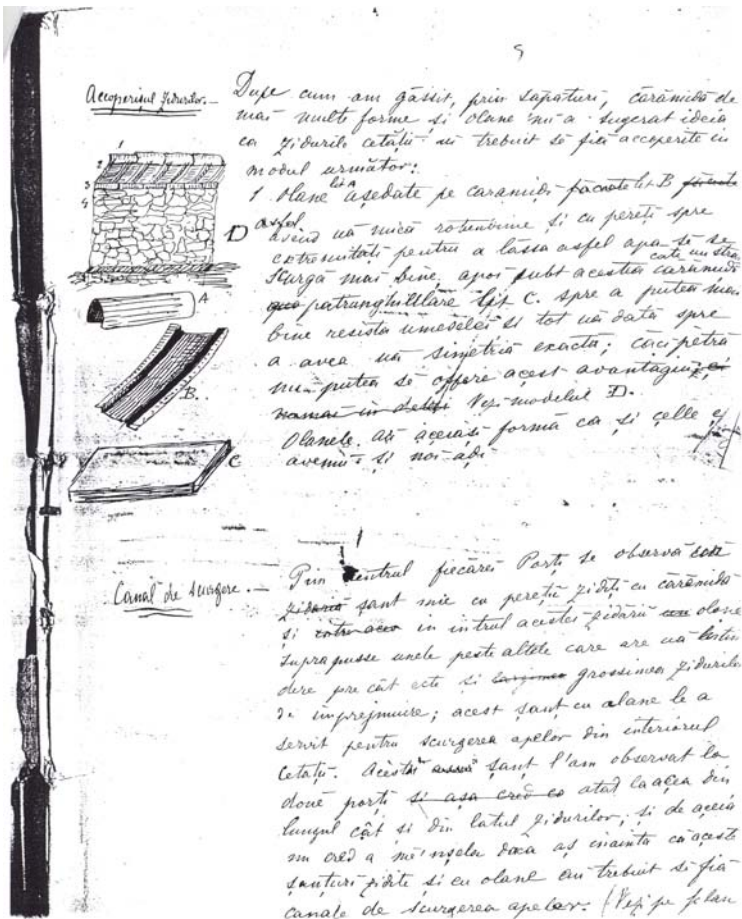 5
Accoperișul Zidurilor.—
Dupe cum am găssit, prin sapaturi, cărămidă de
mai multe forme si olane mi-a sugerat ideia
ca zidurile cetății au trebuit să fiă accoperite in
modul următor:
1 olane lit A așezate pe caramidi făcute lit B
astfel
avênd uă mică rotundime și cu pereți spre
extremități pentru a lăssa asfel apa să se
scurgă mai bine, apoi subt acestia câte un strat cărămidi
patrunghiulare lit C. spre a putea mai
bine resista umeselei si tot uă dată spre
a avea uă simetriă exactă; căci pétra
nu putea să offere acest avantagiu;
numai in Vezi modelul D.
Olanele au aceiasi formă ca și celle ce
avemŭ și noi adi
1
2
3
4
D
A
B.
C
Canal de scurgere.—
Prin centrul fiecărei Porți se observă câte
zidariă șant mic cu pereții zidiți cu cărămidă
și intru acea in intrul acestei zidării cu olane
suprapusse unele peste altele care are uă întin
dere pre cât este si largimea grossimea zidurilor
de imprejmuire; acest șanț cu olane le a
servit pentru scurgerea apelor din interiorul
cetății. Acestă șanț l'am observat la
douĕ porți si așa cred ca atât la acea din
lungul cât și din latul zidurilor; și de aceia
nu cred a mĕ 'nșela daca aș inainta că aceste
șanțuri zidite și cu olane au trebuit să fiă
canale de scurgerea apelor. (Vezi pe plan